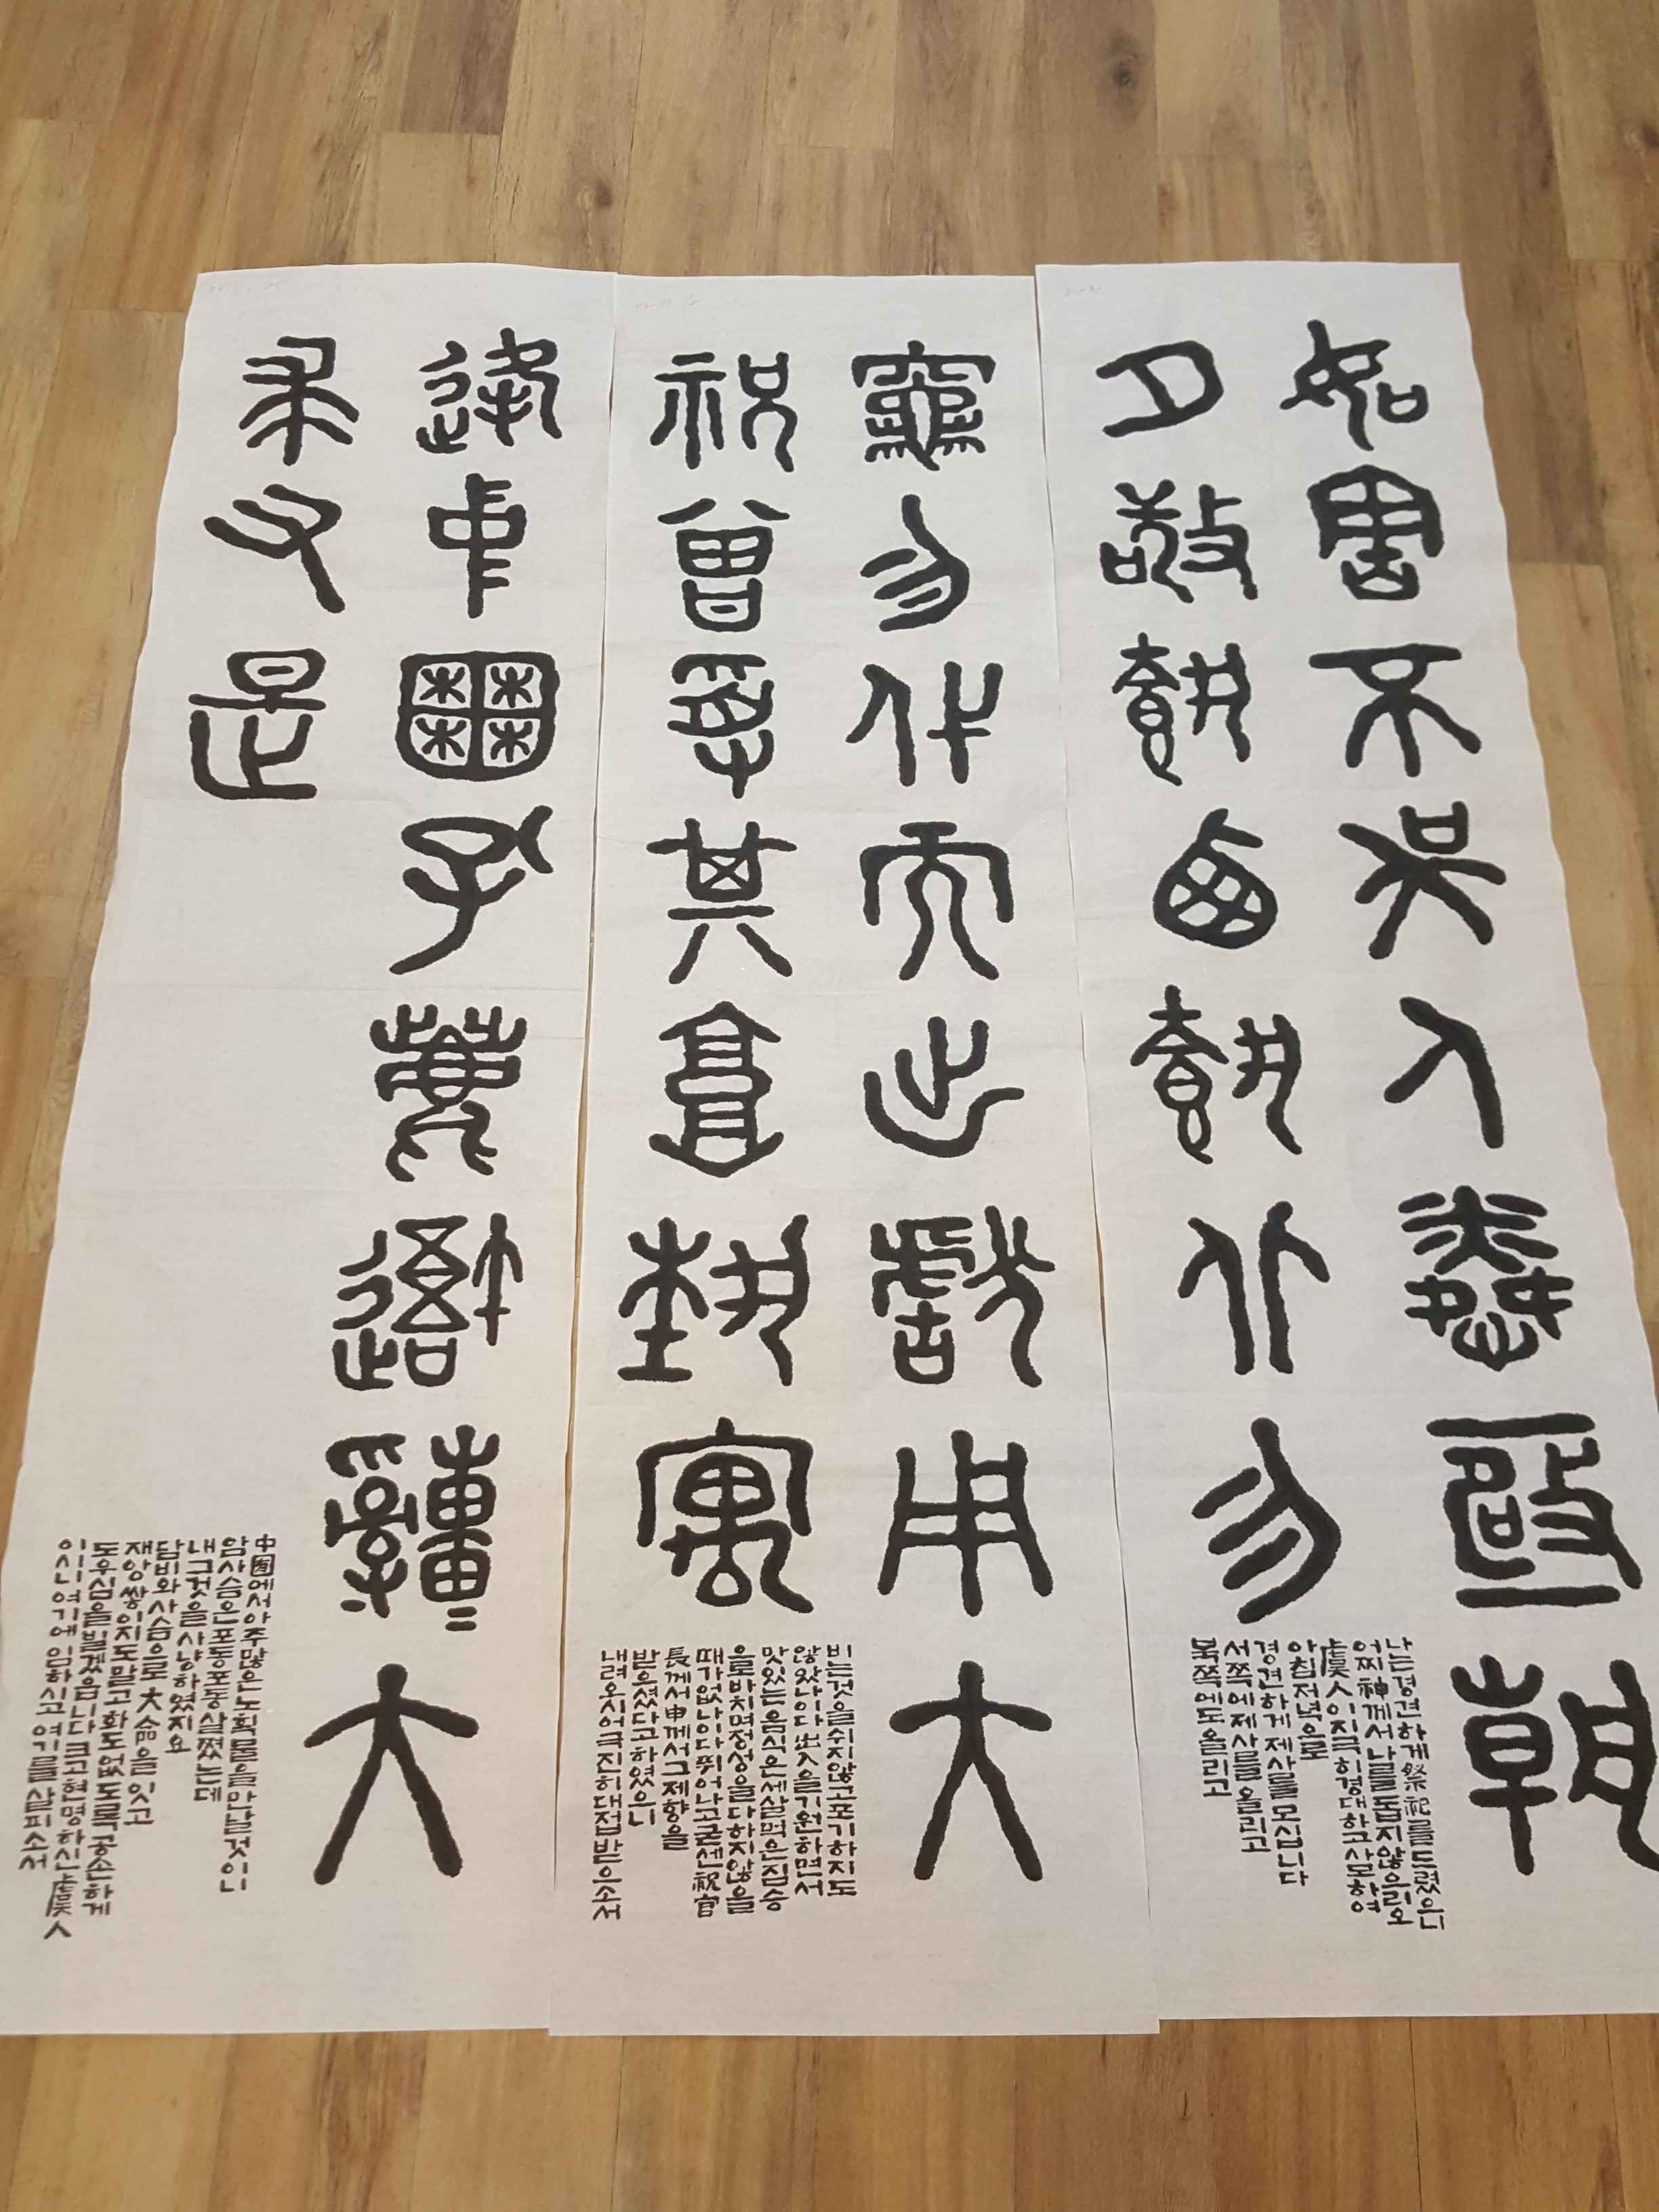 如害不吳人憐亟朝
夕敬載西載北勿
나는경견하게祭祀를드렸으니
어찌神께서나를돕지않으리오
虞人이지극히경대하고사모하여
아침저녁으로
경견하게제사를모십니다
서쪽에제사를올리고
북쪽에도올리고
竈勿代而出獻用大
祝曾受其享埶寓
비는것을쉬지않고포기하지도
않았나이다出入을기원하면서
맛있는음식은세살먹은짐승
을로바치며정성을다하지않을
때가없나이다뛰어나고굳센祝官
長께서申께서그제향을
받으셨다고하였으니
내려오시어극진히대접받으소서
逢中囿孔大
求又是
中囿에서아주많은노획물을만날것이니
암사슴은포동포동살쪘는데
내그것을사냥하였지요
담비와사슴으로大命을잇고
재앙쌓이지도말고화도없도록공손하게
도우심을빌겠읍니다크고현명하신虞人
이신여기에임하시고여기를살피소서